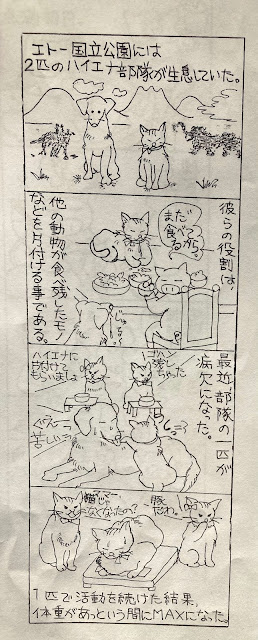 エトー国立公園には
2匹のハイエナ部隊が生息していた。
彼らの役割は、
他の動物が食べ残したモノ
などを片付ける事である。
まだ
食べてっから。
じゅる
最近、部隊の一匹が
病欠になった。
ハイエナに
片付けて
もらいましょ
ゴハン
残し
ちゃった
ぐえー
苦しい
猫じゃ
なくなったの?
1匹で活動を続けた結果、
体重があっという間にMAXになった。